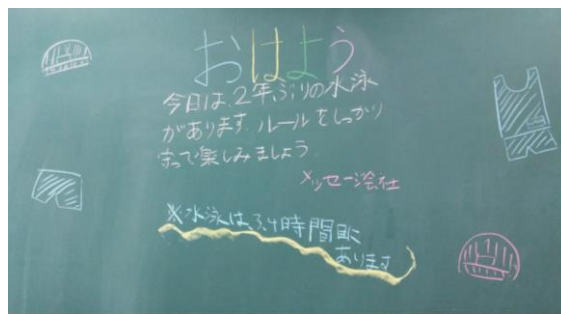 おはよう
今日は、2年ぶりの水泳
があります。ルールをしっかり
守って楽しみましょう
メッセージ会社
※水泳は、3,4時間目に
あります